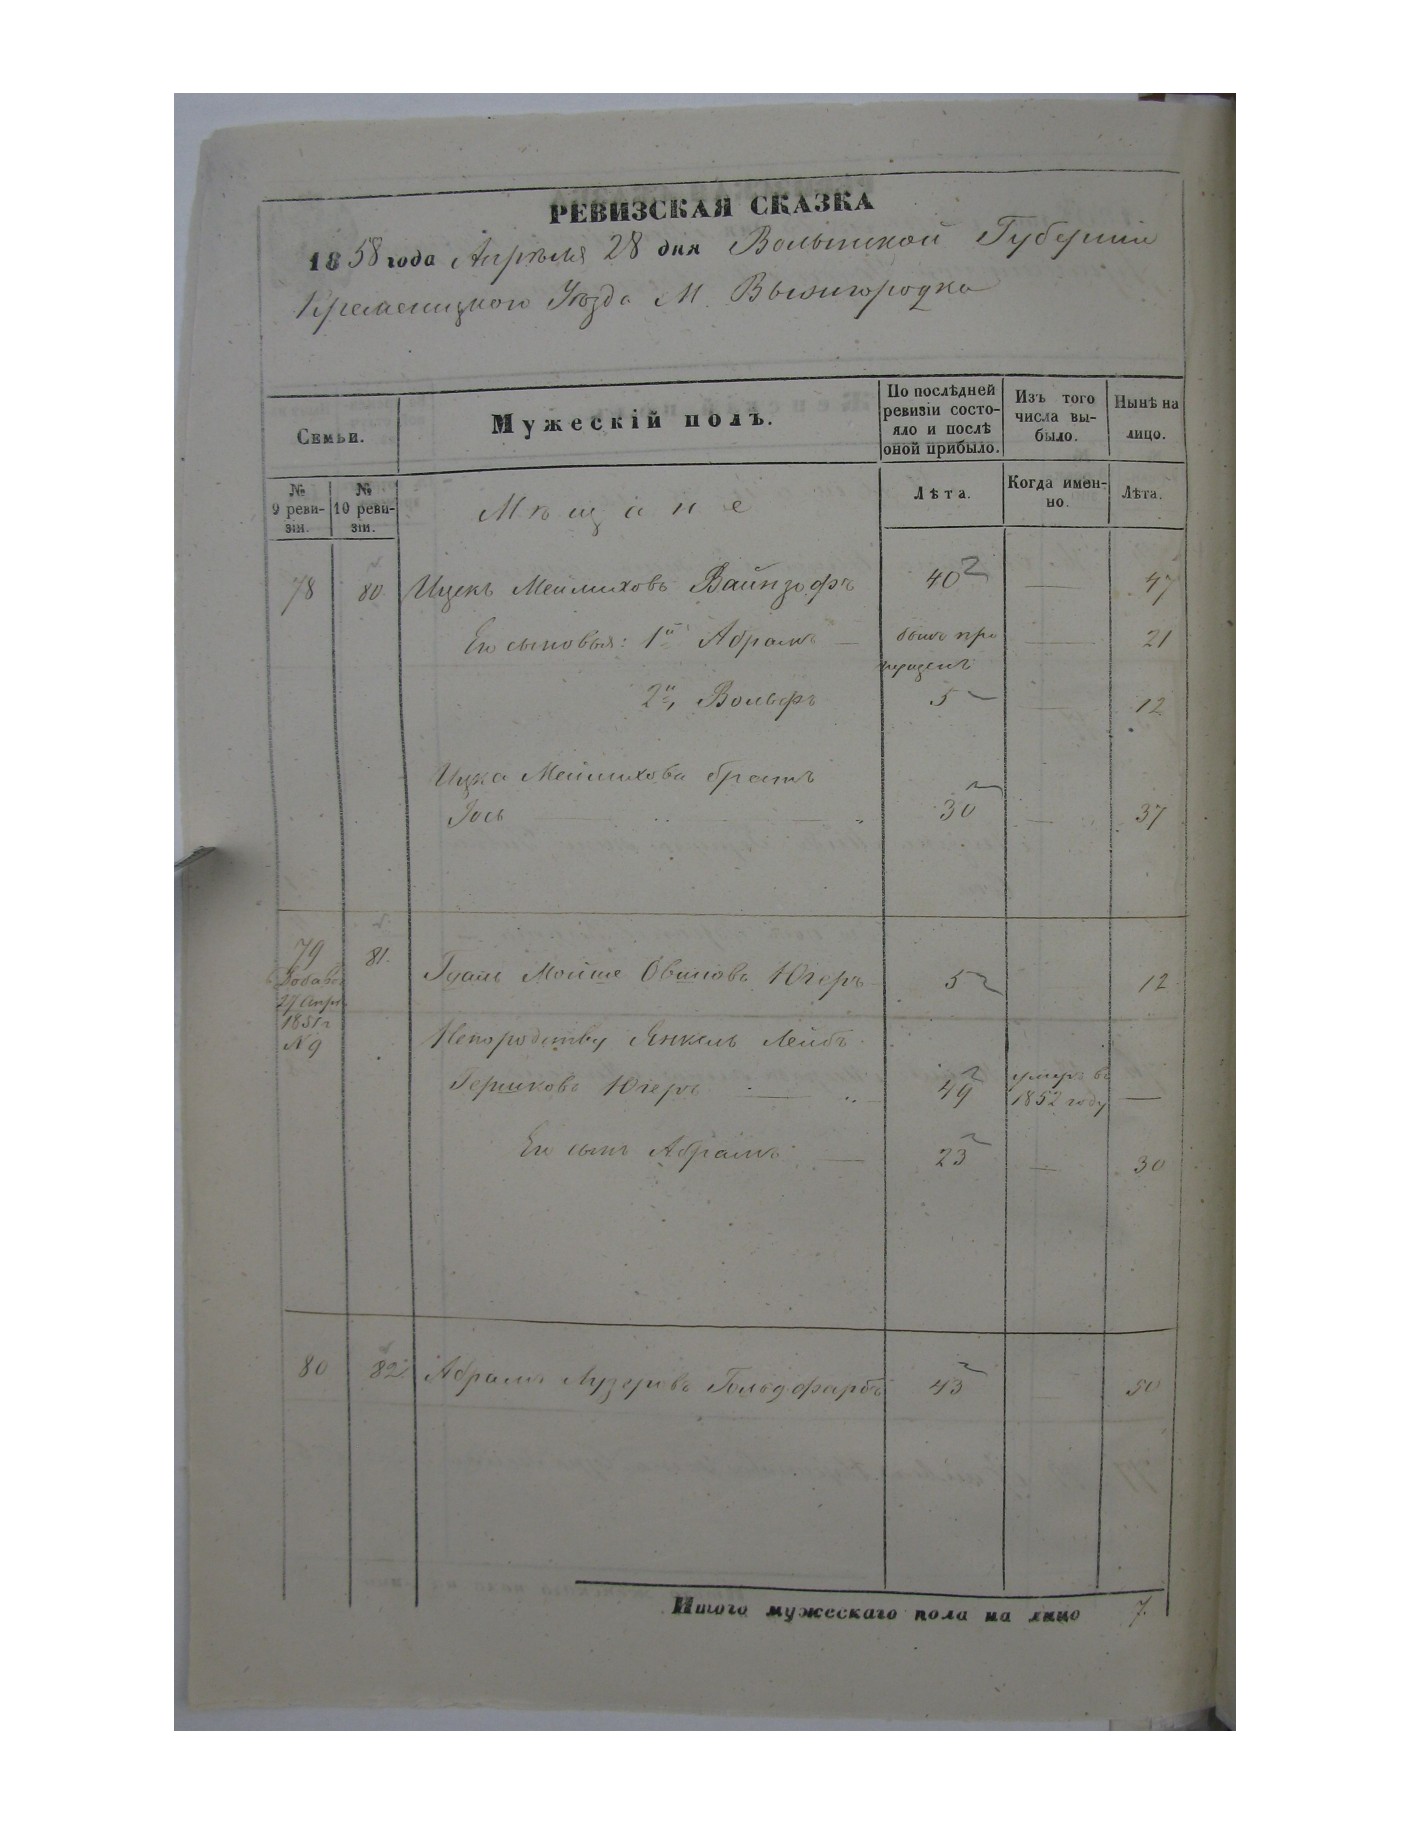 РЕВИЗСКАЯ СКАЗКА
1858 года Апрѣля 28 дня Волынской Губерніи
Кременецкого Уѣзда М. Вышгородка
Семьи.
Мужескій полъ.
По послѣдней ревизіи состояло и послѣ оной прибыло.
Изъ того числа выбыло.
Нынѣ на лицо.
№ 9 ревизіи.
№ 10 ревизіи.
Мѣщане
Лѣта.
Когда именно.
Лѣта.
78 80 Ицекъ Меилиховъ Вайнзофъ 40 — 47
Его сыновья: 1й Абрамъ — былъ пропущенъ — 21
2й, Вольфъ 5 — 12
Ицка Меилихова братъ
Іось 30 — 37
79 81. Гдаль Мойше Овшиовъ Югеръ 5 12
Добавоч
27 Апрѣ
1851 г
№ 9
Непородству Янкель Лейбъ
Гершковъ Югеръ 49 умеръ въ 1852 году —
Его сынъ Абрамъ — 23 — 30
80 82. Абрамъ Лузеровъ Гольдфарбъ 43 — 50
Итого мужескаго пола на лицо 7.